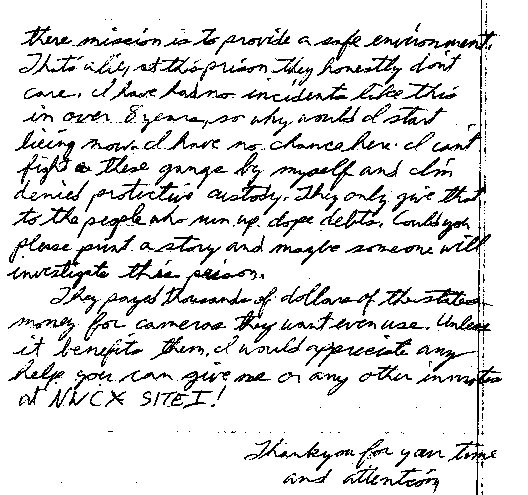 there mission is to provide a safe environment.
That's a lie, at this prison they honestly don't
care. I have had no incidents like this
in over 8 years, so why would I start
lieing now. I have no chance here. I can't
fight these gangs by myself and I'm
denied protective custody. They only give that
to the people who run up dope debts. Could you
please print a story and maybe someone will
investigate this prison.
They payed thousands of dollars of the states
money for cameras they want even use. Unless
it benefits them. I would appreciate any
help you can give me or any other inmates
at NWCX SITE I!
Thank you for your time
and attention